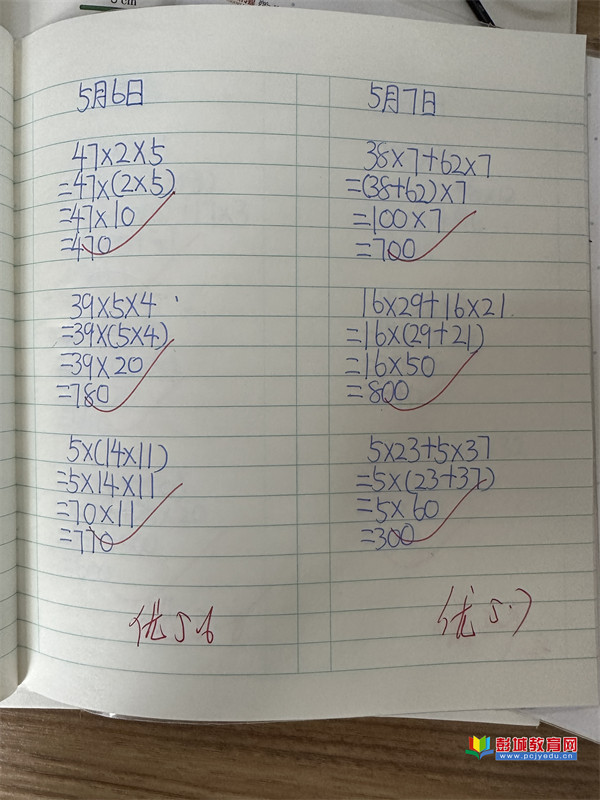 cm
5月6日
47×2×5
=47×(2×5)
=47×10
=470
39×5×4
=39×(5×4)
=39×20
=780
5×(14×11)
=5×14×11
=70×11
=770
优 5.6
5月7日
38×7+62×7
=(38+62)×7
=100×7
=700
16×29+16×21
=16×(29+21)
=16×50
=800
5×23+5×37
=5×(23+37)
=5×60
=300
优 5.7
彭城教育网
www.pcjyedu.cn